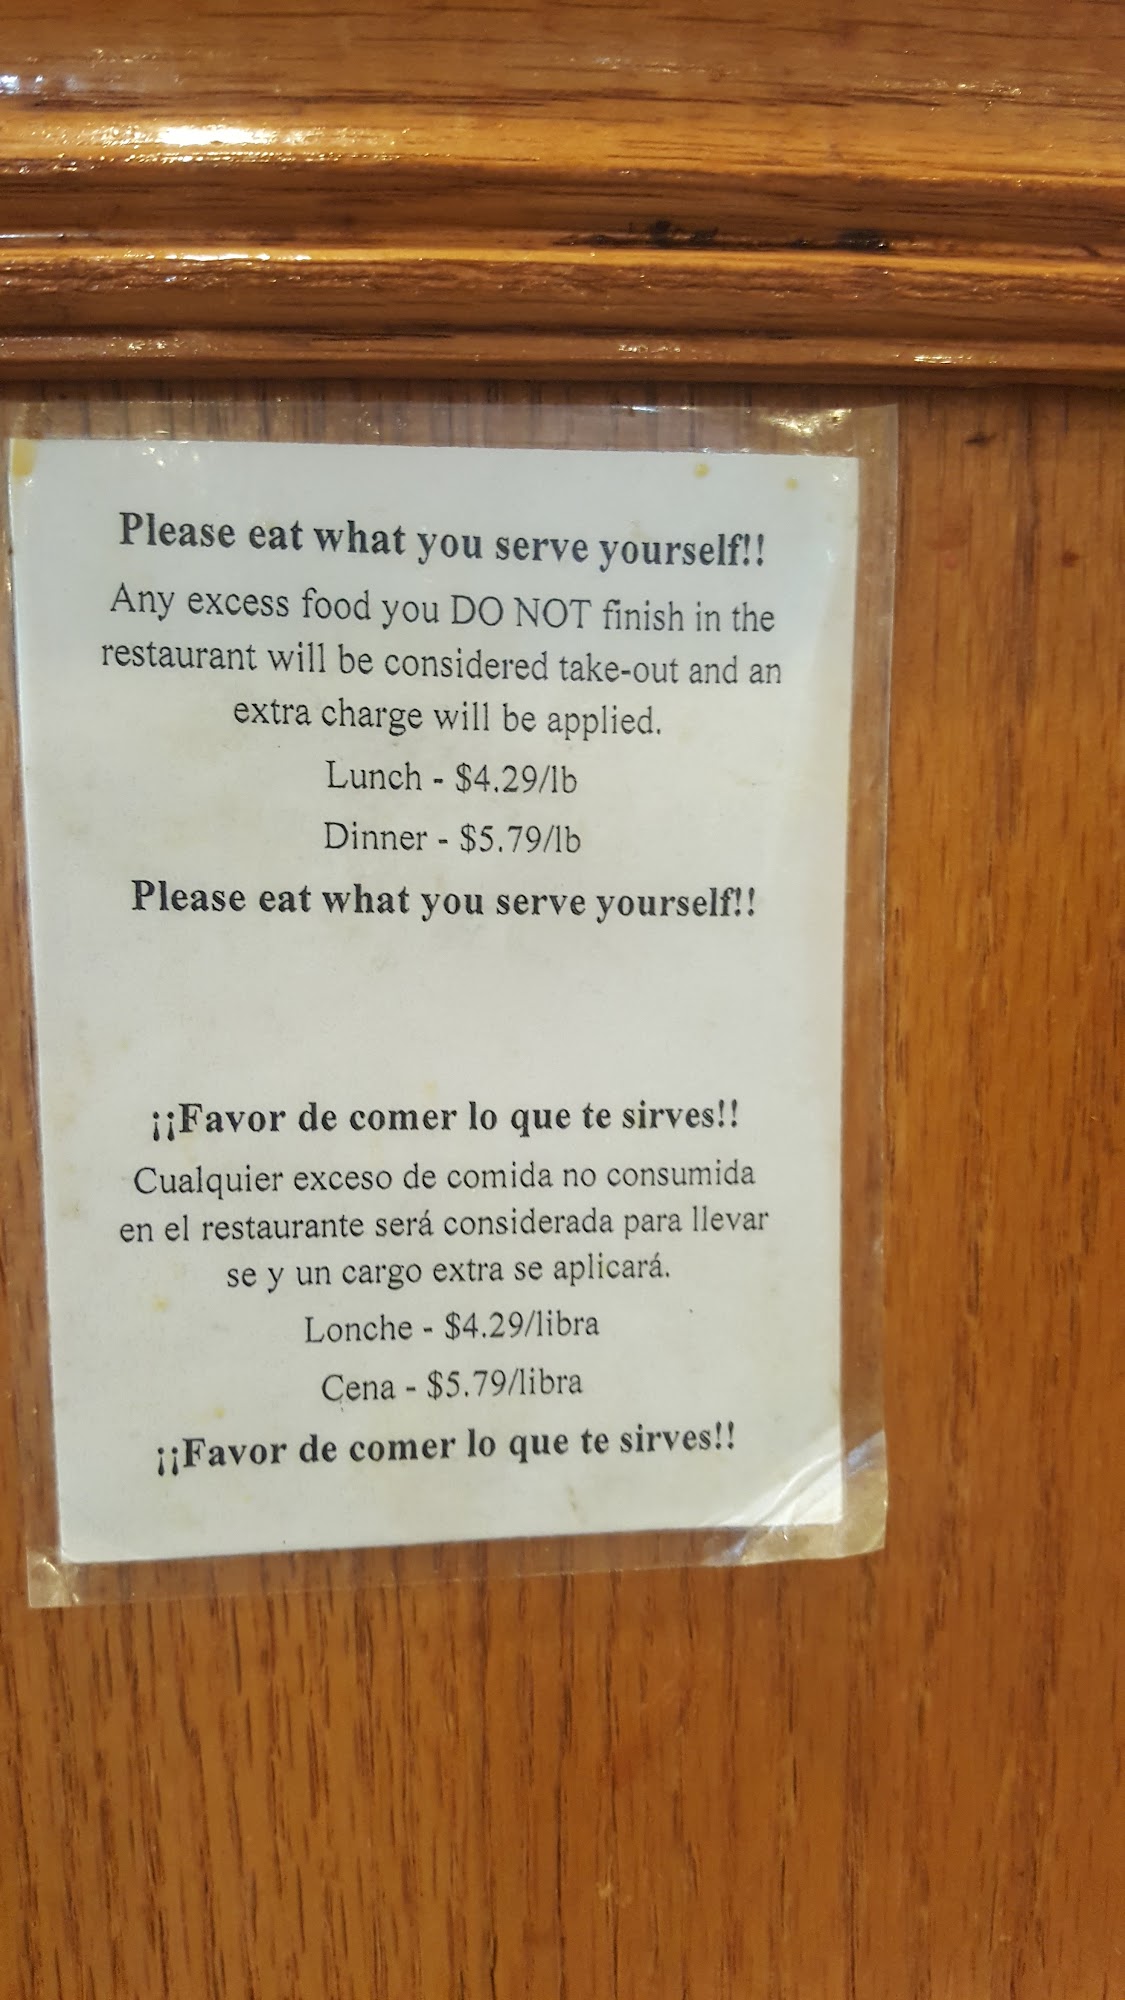 Please eat what you serve yourself!!
Any excess food you DO NOT finish in the
restaurant will be considered take-out and an
extra charge will be applied.
Lunch - $4.29/lb
Dinner - $5.79/lb
Please eat what you serve yourself!!
¡¡Favor de comer lo que te sirves!!
Cualquier exceso de comida no consumida
en el restaurante será considerada para llevar
se y un cargo extra se aplicará.
Lonche - $4.29/libra
Cena - $5.79/libra
¡¡Favor de comer lo que te sirves!!